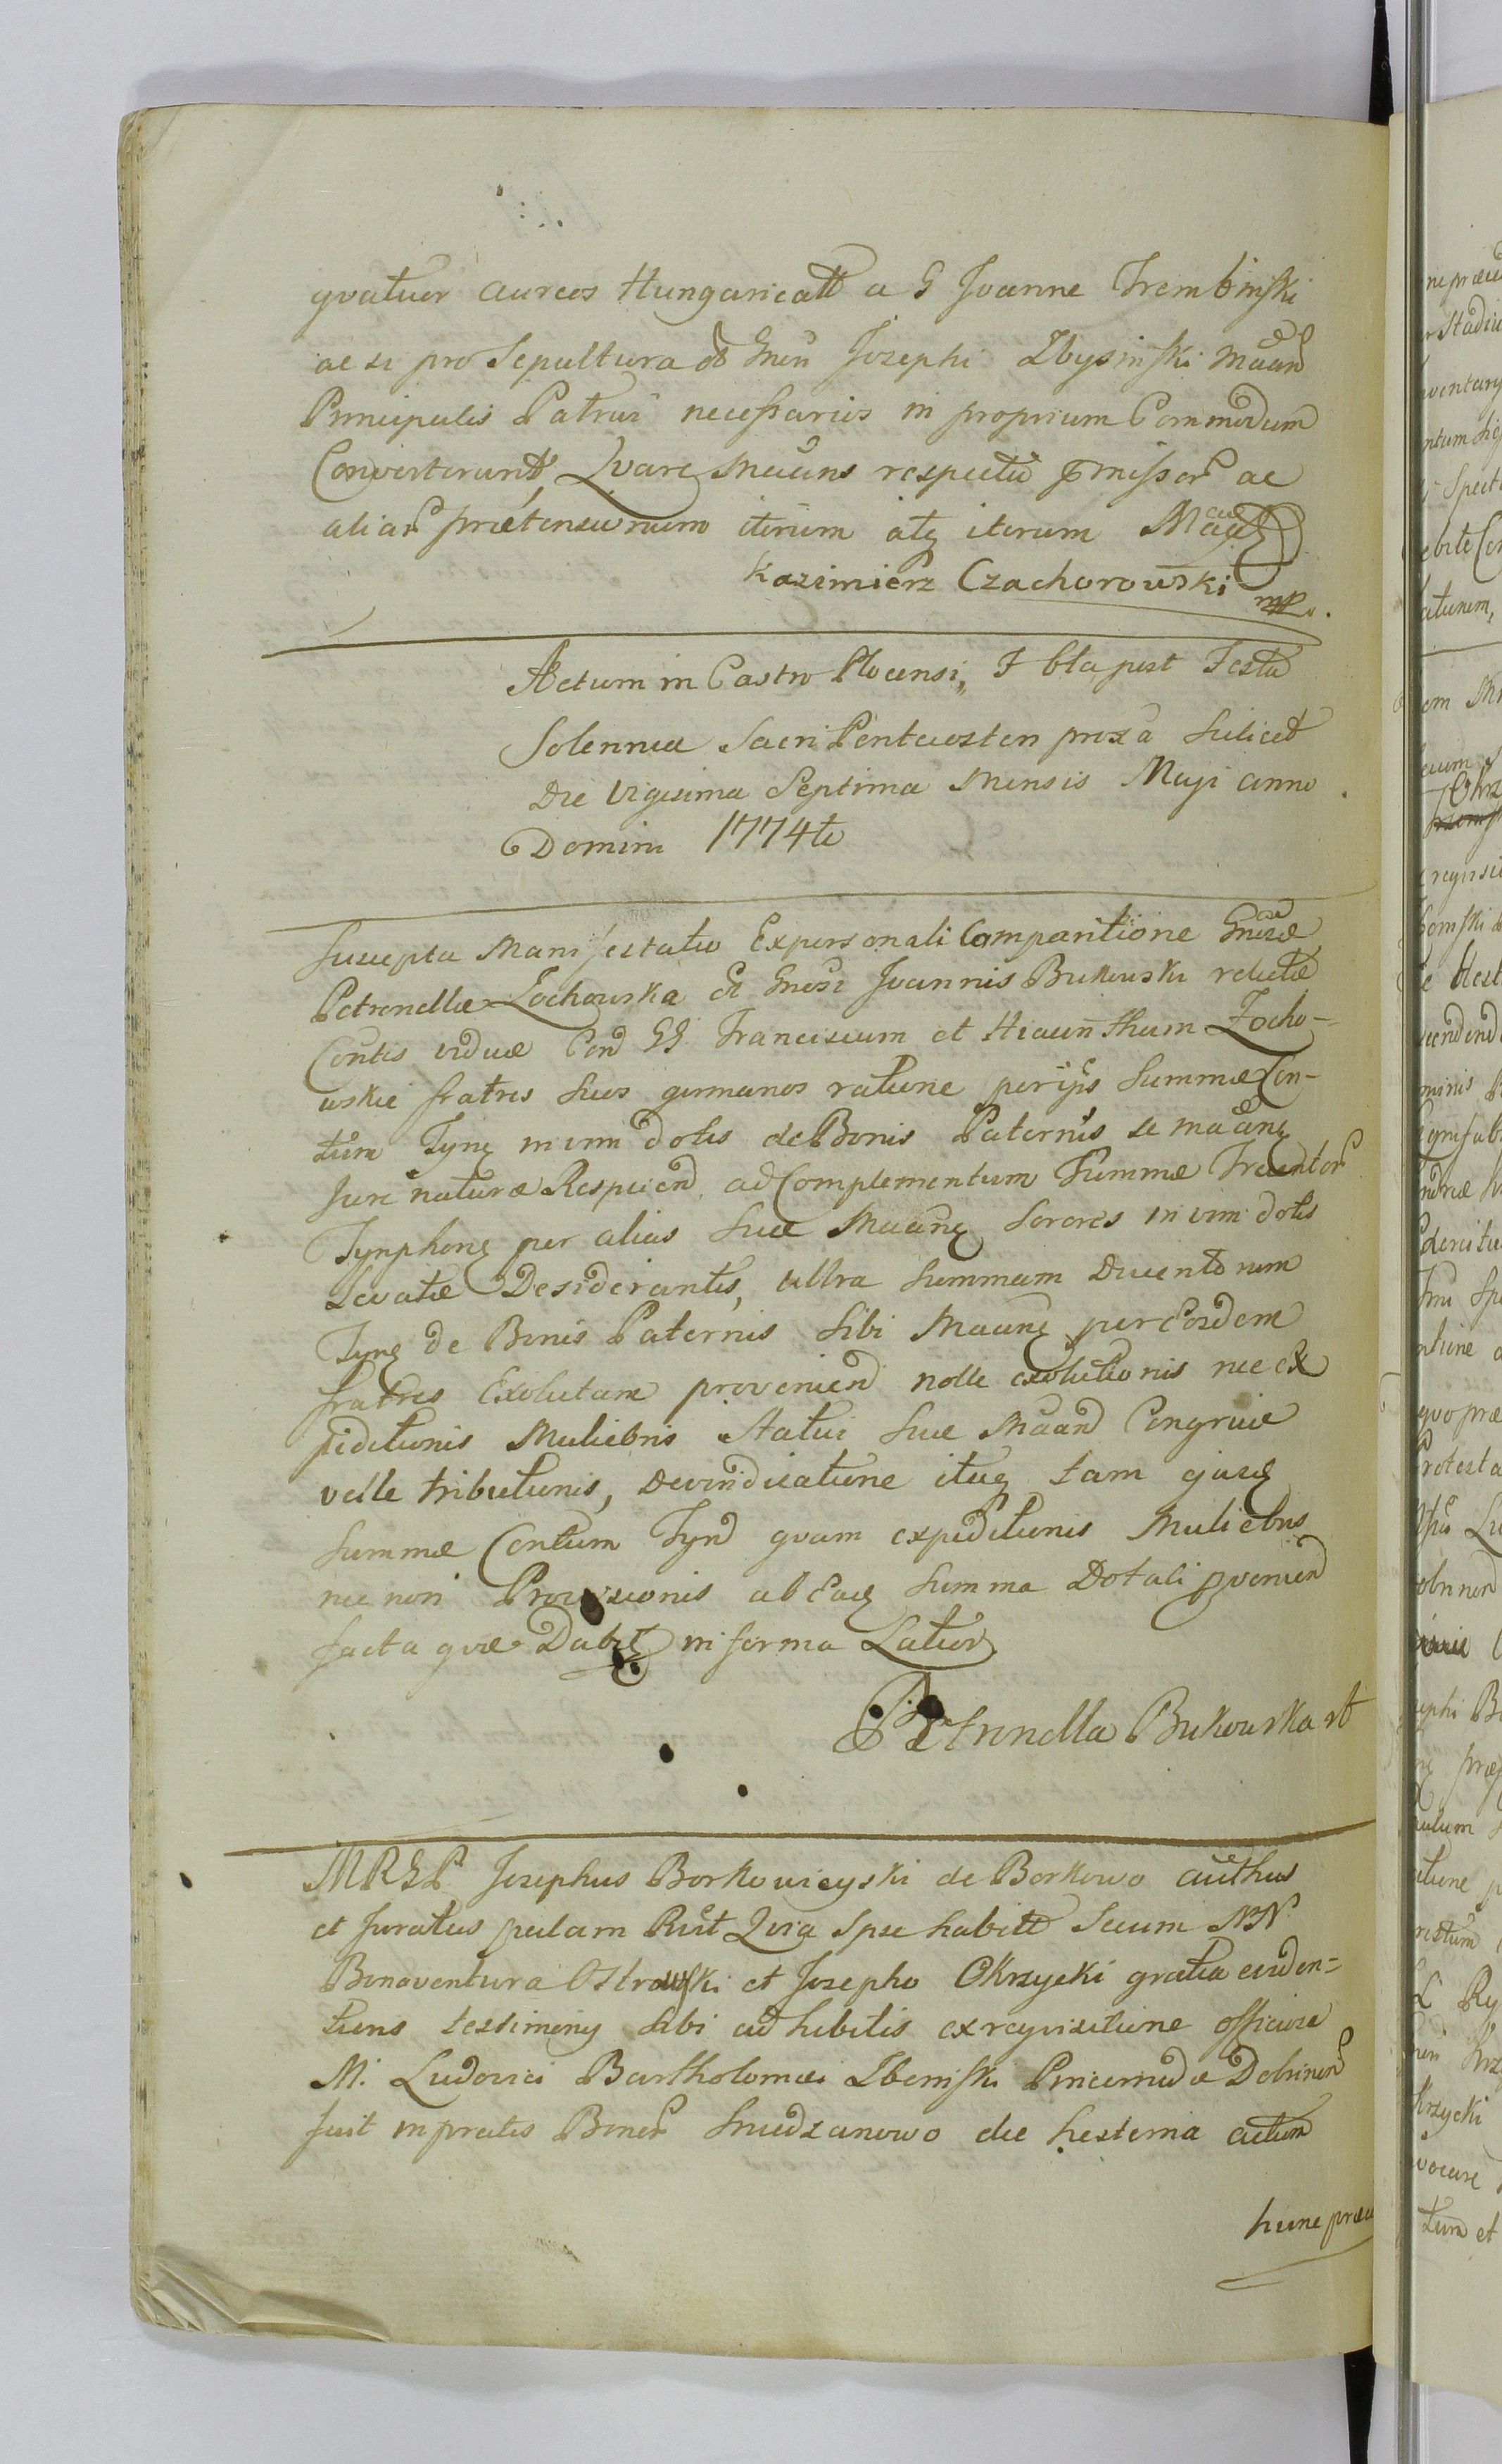 qvatuor aureos Hungaricatt a G Joanne Trembinski
ac si pro Sepultura Gnri Josephi Zbysinski Maan
Principalis Patrui necessarios in proprium Commodum
Converterunt, Qvare Maans respectu pmissor ac
aliar prætensionum iterum atq iterum Maã
Kazimierz Czachorowski mp.
Actum in Castro Plocensi, F bta post Festa
Solennia Sacri Pentecosten proxa scilicet
Die Vigesima Septima Mensis Maji anno
Domini 1774to
Suscepta Manifestatio Expersonali Comparitione Gnrosæ
Petronellæ Zochowska Gnrosi Joannis Bukowski relictæ
Contis viduæ Con GG Franciscum et Hiacinthum Zocho-
wskie fratres suos germanos ratione perijs Summæ Cen-
tum Tynq in vim dotis de Bonis Paternis se maanq
Jure naturæ Respicien ad Complementum Summæ Trecentor
Tynphonq per alias suæ Maanq Sorores in vim dotis
Levatæ Desiderantis, ultra Summam Ducentorum
Tynq de Bonis Paternis Sibi Maanq per Eosdem
fratres Exolutam provenien nolle exolutionis nec ex
peditionis Muliebris Statui suæ Maan Congruæ
velle tributionis, Devindicatione itaq tam ejusq
Summæ Centum Tyn qvam expeditionis Muliebris
nec non Provisionis ab Eaq Summa Dotali pvenien
facta qvæ Dabit in forma Latior
Petronella Bukowska
MRGP Josephus Borkowieyski de Borkowo authus
et Juratus palam Rcit Qvia Ipse habitt Secum NN
Bonaventura Ostrowski et Josepho Okrzycki gratia eviden=
tions testimony sibi adhibitis ex reqvisitione officiosa
M. Ludovici Bartholomei Zbonski Pincernidæ Dobrinen
fuit in pratis Bonor Sniedzanowo die hesterna actum
hunc præ